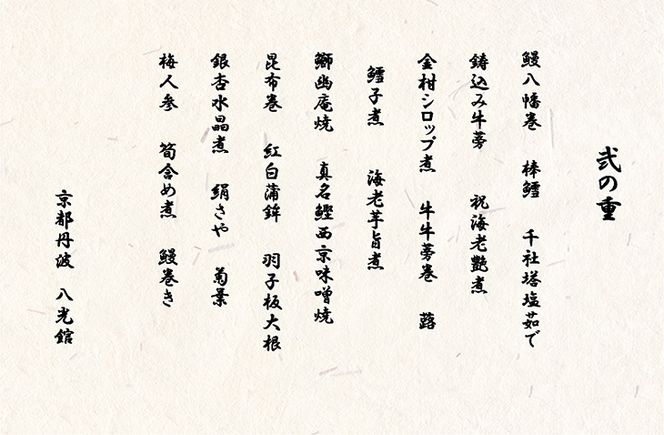 弐の重
鰻八幡巻　棒鱈　千社塔塩茹で
鋳込み牛蒡　祝海老艶煮
金柑シロップ煮　牛牛蒡巻　蕗
鱈子煮　海老芋旨煮
鰤幽庵焼　真名鰹西京味噌焼
昆布巻　紅白蒲鉾　羽子板大根
銀杏水晶煮　絹さや　菊葉
梅人参　筍含め煮　鰻巻き
京都丹波　八光館